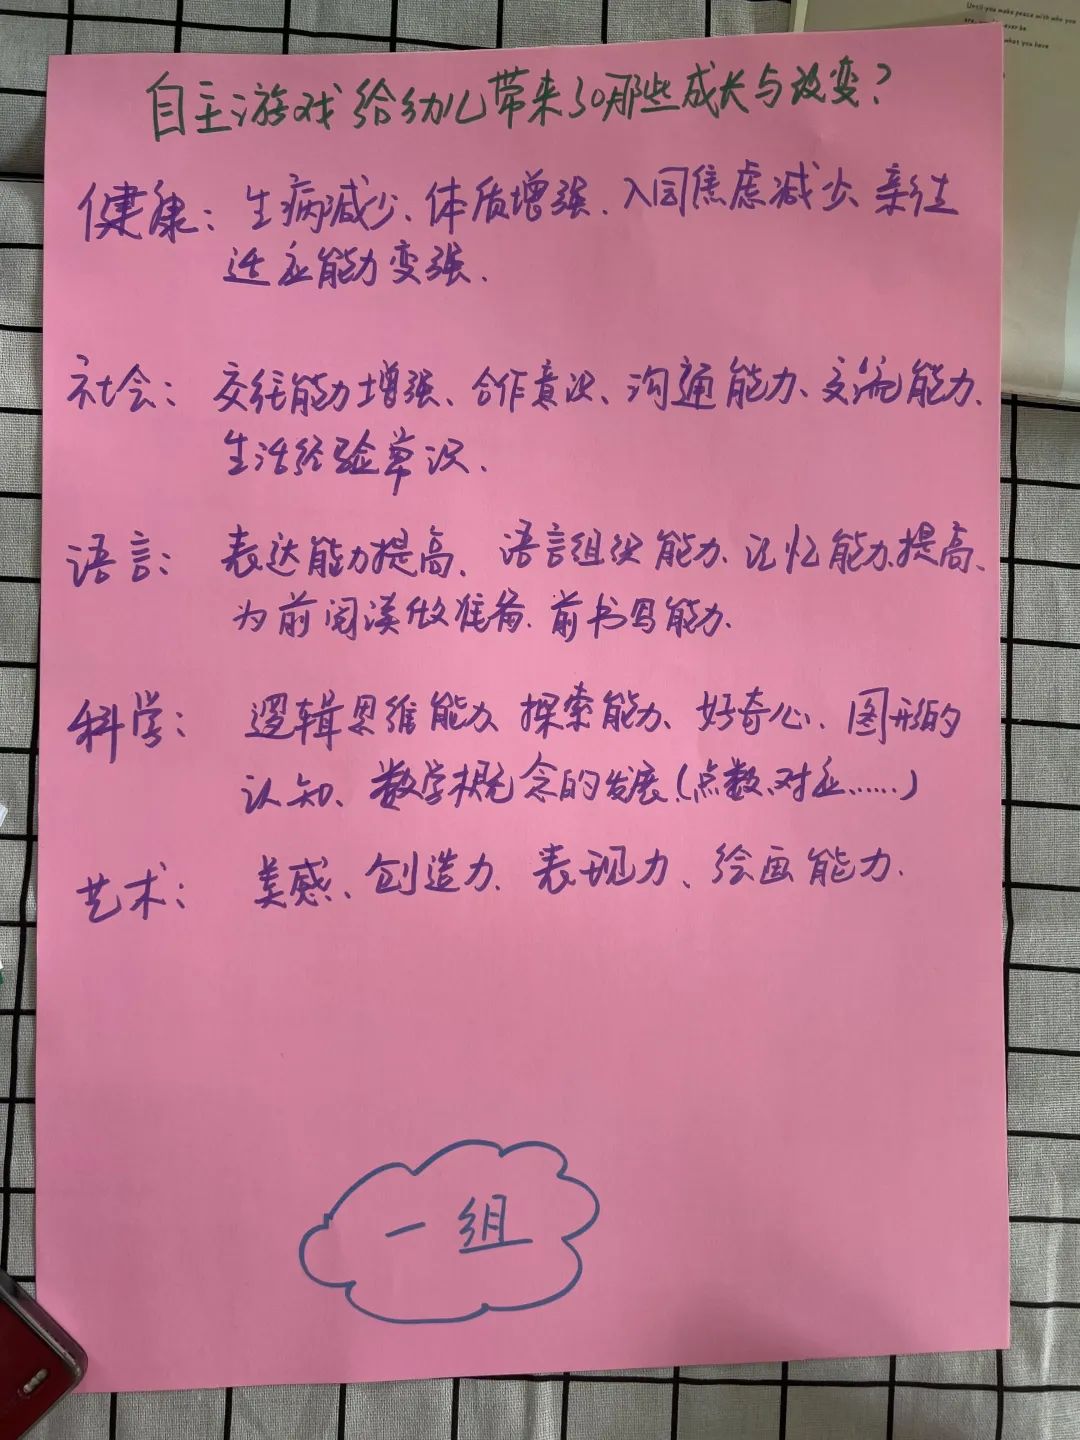 自主游戏给幼儿带来了哪些成长与改变?
健康: 生病减少、体质增强、入园焦虑减少、新生
适应能力变强.
社会: 交往能力增强、合作意识、沟通能力、交流能力、
生活经验
语言: 表达能力提高、语言组织能力、记忆能力提高、
为前阅读做准备、前书写能力.
科学: 逻辑思维能力、探索能力、好奇心、图形的
认知、数学概念的发展(点数、对应……)
艺术: 美感、创造力、表现力、绘画能力.
一组
Until you make peace with who you
ever be
what you have